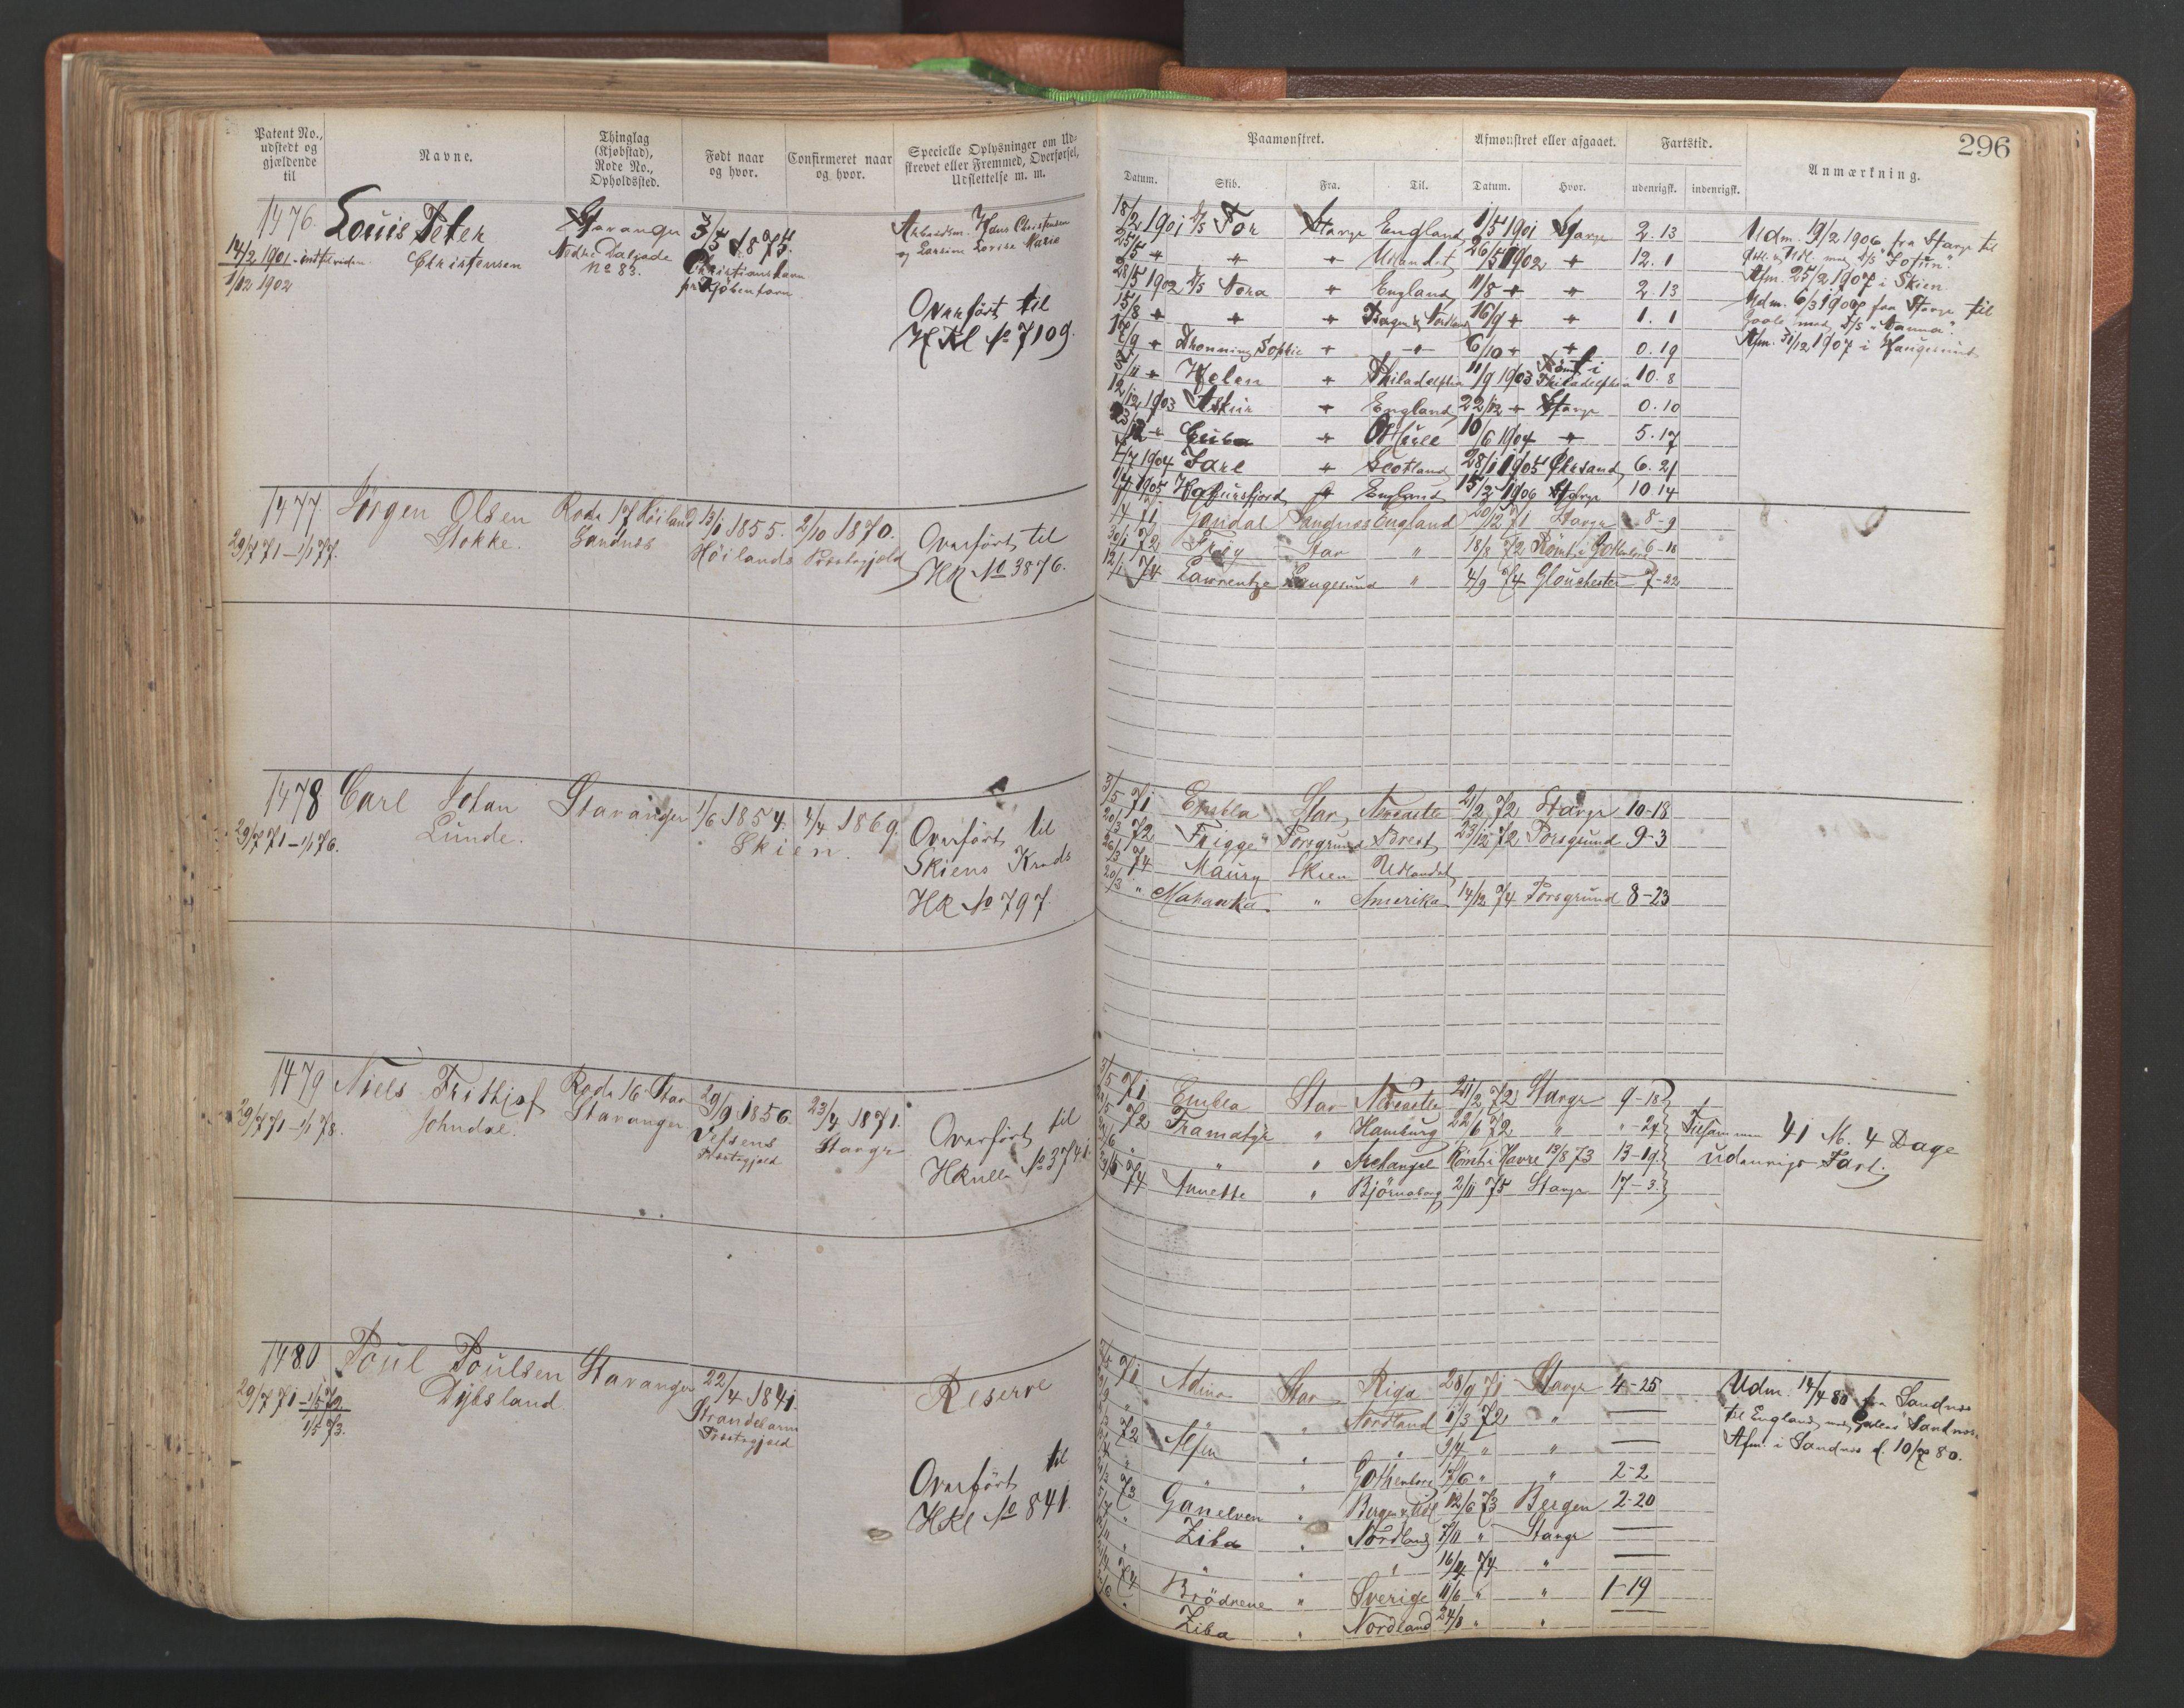 296
Patent No., udstedt og gjældende til
Navne.
Thinglag (Kjøbstad), Rode No., Opholdssted.
Født naar og hvor.
Confirmeret naar og hvor.
Specielle Oplysninger om Udskrevet eller Fremmed, Overførsel, Udslettelse m. m.
Paamønstret.
Afmønstret eller afgaaet.
Fartstid.
Anmærkning.
Datum.
Skib.
Fra.
Til.
Datum.
Hvor.
udenrigsk.
indenrigsk.
1476.
14/2 1901 - indtilviden
1/12 1902
Louis Peter
Christensen
Stavanger
Nedre Dalgade
No 83.
3/5 1875.
Christianshavn
pr Kjöbenhavn
Arbeidsm. Hans Christensen
og Larsine Lovise Marie
Overført til
H Rl No 7109.
18/2 1901 D/S Tor Stavgr England 1/5 1901 Stavgr 2.13
25/5 " " " Udlandet 26/5 1902 " 12.1
28/5 1902 D/S Nora " England 11/8 " " 2.13
15/8 " " " Bergen & Nordland 16/9 " " 1.1
17/9 " Dronning Sophie " " 6/10 " " 0.19
3/11 " Helen " Philadelphia 11/9 1903 Rømt i Philadelphia 10.8
12/12 1903 Askur " England 22/12 " Stavgr 0.10
" Cuba " Hull 10/6 1904 " 5.17
7/7 1904 Jarl " Scotland 28/1 1905 Chrsand 6.21
1905 Hafursfjord " England 15/2 1906 Stavgr 10.14
Udm. 19/2 1906 fra Stavgr til
Indl. & Udl. med D/S "Jotun".
Afm. 25/2 1907 i Skien
Udm. 6/3 1907 fra Stavgr til
Goole med D/S "Nanna".
Afm. 31/12 1907 i Haugesund
1477.
29/7 71 - 1/1 77.
Jörgen Olsen
Stokke.
Rode 17 Höiland
Sandnes
13/1 1855.
Höilands
2/10 1870.
Præstegjeld
Overført til
HR No 3876.
71 Gandal Sandnes England 20/12 71 Stavgr 8-9
30/1 72 Freÿ Stav " 18/8 72 Römt i Gothenborg 6-18
12/1 74 Lawrentze Langesund " 4/9 74 Glouchester 7-22
1478
29/7 71 - 1/1 76.
Carl Johan
Lunde.
Stavanger
1/6 1854.
Skien.
4/4 1869.
Overført til
Skiens Kreds
HR No 797.
3/5 71 Embla Stav Newcastle 21/2 72 Stavgr 10-18
20/3 72 Frigge Porsgrund Brest 23/12 72 Porsgrund 9-3
26/3 74 Maury Skien Udlandet
20/3 " Mahauka " Amerika 14/12 74 Porsgrund 8-23
1479
29/7 71 - 1/1 78.
Niels Frithjof
Johndal.
Rode 16 Stav
Stavanger
29/9 1856.
Vefsens
Præstegjeld
23/4 1871.
Stavgr
Overført til
HRulle No 3741
3/5 71 Embla Stav Newcastle 21/2 72 Stavgr 9-18
72 Framatyr " Hamburg 22/6 72 " "-24
" " " Archangel Römt i Havre 13/8 73 13-19
74 Annette " Björneborg 2/11 75 Stavgr 17-3
Tilsammen 41 M. 4 Dage
udenrigs Fart.
1480
29/7 71 - 1/5 72
1/5 73.
Poul Poulsen
Dybsland
Stavanger
22/4 1841.
Strandebarm
Præstegjeld
Reserve
Overført til
HRl No 841.
71 Adina Stav Riga 28/9 71 Stavgr 4-25
" " " Nordland 1/3 72 " —
72 Alfen " " 9/4 " " —
" " " Gothenborg 17/6 " " 2-2
73 Ganelven " Bergen & Udl 12/6 73 Bergen 2-20
" Ziba " Nordland 7/11 " Stavgr —
" " " " 16/4 74 " —
74 Brödrene " Sverige 11/6 " " 1-19
" Ziba " Nordland 24/8 " " —
Udm. 14/4 80 fra Sandnes
til England med Sandnes
Afm. i Sandnes d. 10/7 80.